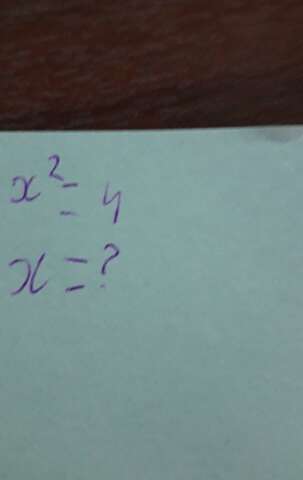 x² = 4
x = ?